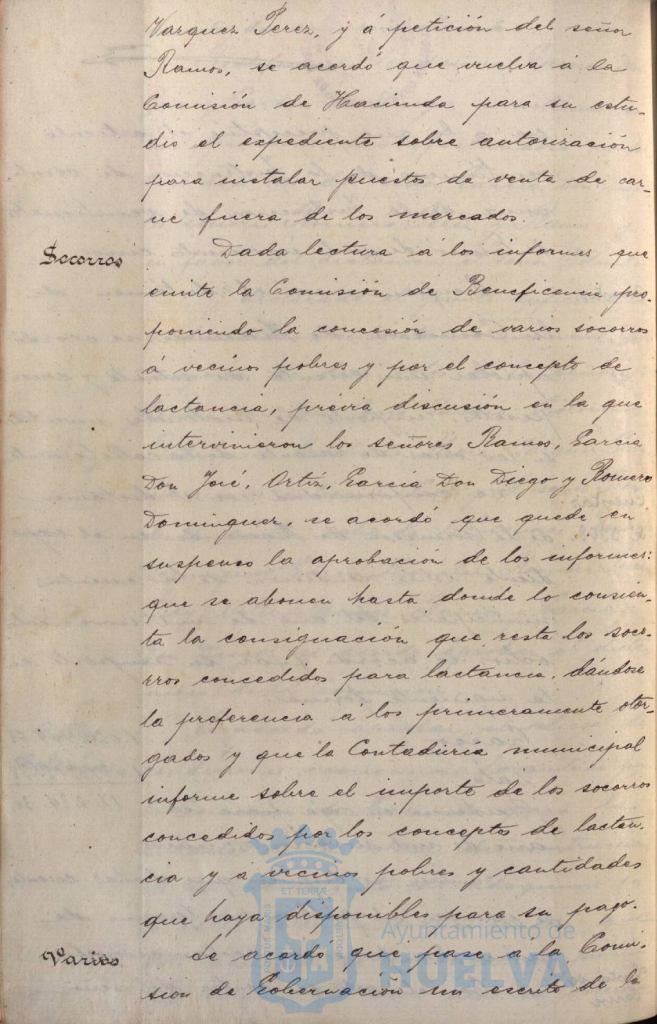 Vazquez Perez, y á petición del señor
Ramos, se acordó que vuelva á la
Comisión de Hacienda para su estu-
dio el expediente sobre autorización
para instalar puestos de venta de car-
ne fuera de los mercados.
Socorros
Dada lectura á los informes que
emite la Comisión de Beneficencia pro-
poniendo la concesión de varios socorros
á vecinos pobres y por el concepto de
lactancia, prévia discusión en la que
intervinieron los señores Ramos, Garcia
Don José, Ortiz, Garcia Don Diego y Romero
Dominguez, se acordó que quede en
suspenso la aprobación de los informes:
que se abonen hasta donde lo consien-
ta la consignación que reste los soco-
rros concedidos para lactancia, dándose
la preferencia á los primeramente otor-
gados y que la Contaduría municipal
informe sobre el importe de los socorros
concedidos por los conceptos de lactan-
cia y á vecinos pobres y cantidades
que haya disponibles para su pago.
Varios
Se acordó que pase á la Comi-
sion de Gobernacion un escrito de la
Ayuntamiento de
HUELVA